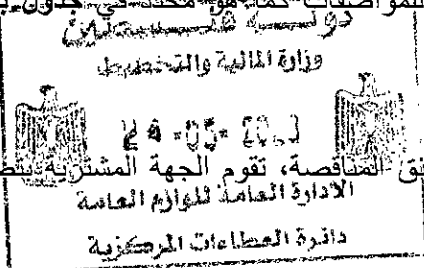 للمواصفات كما هو محدد في جدول
دولة فلسطين
وزارة المالية والتخطيط
24 -05- 20
المناقصة، تقوم الجهة المشترية
الادارة العامة للوازم العامة
دائرة العطاءات المركزية